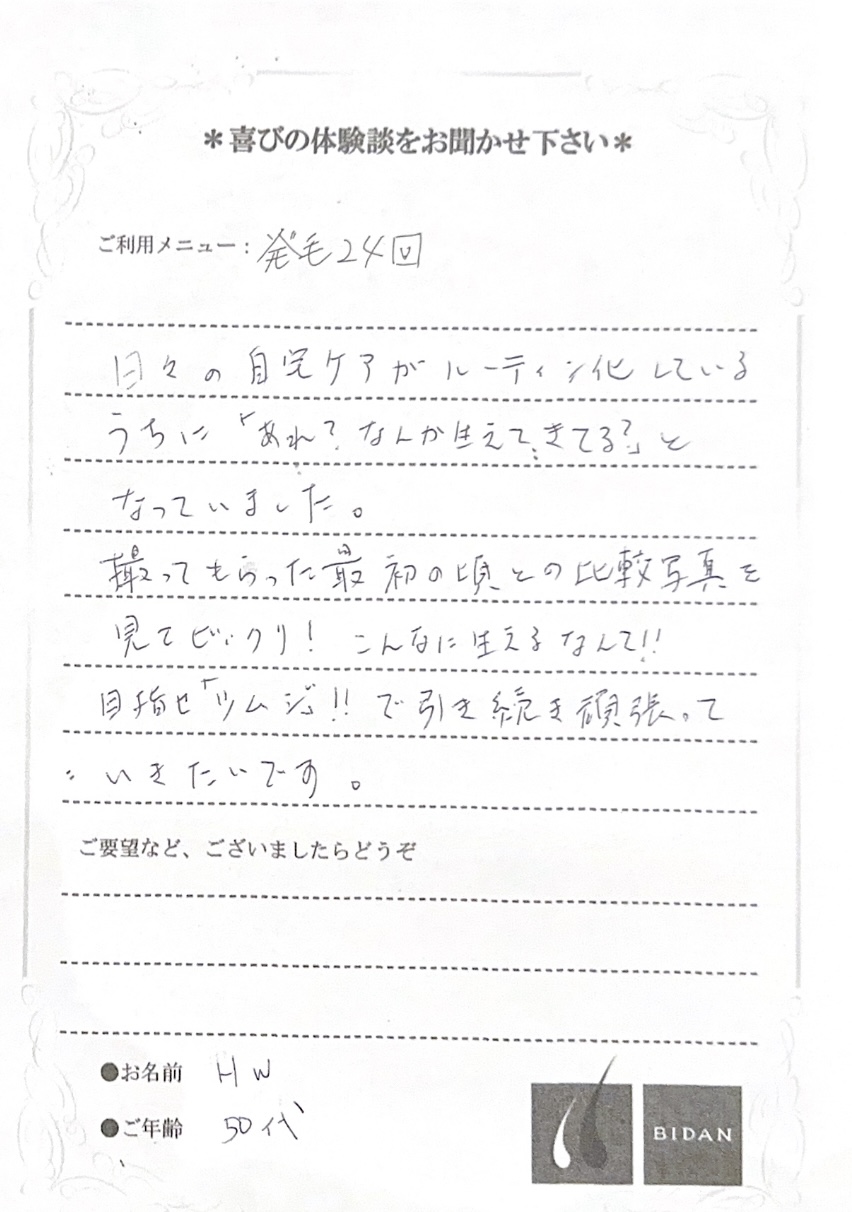 ＊喜びの体験談をお聞かせ下さい＊
ご利用メニュー：発毛24回
日々の自宅ケアがルーティン化している
うちに「あれ？なんか生えてきてる？」と
なっていました。
撮ってもらった最初の頃との比較写真を
見てビックリ！こんなに生えるなんて!!
目指せ「ツムジ」!!で引き続き頑張って
いきたいです。
ご要望など、ございましたらどうぞ
●お名前 HW
●ご年齢 50代
BIDAN